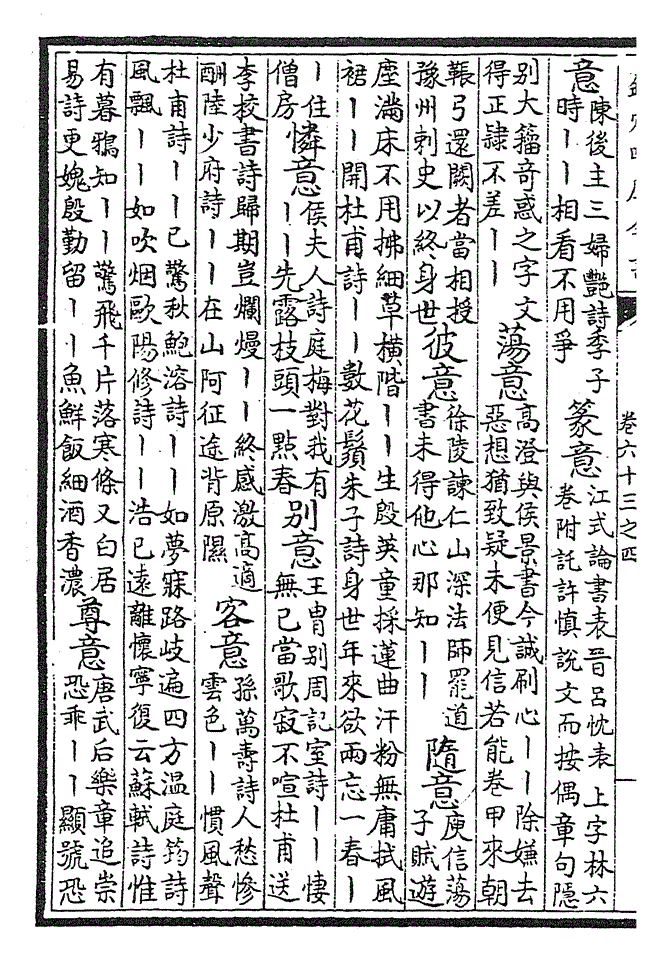 卷六十三之四
意
陳後主三婦艷詩季子
時丨丨相看不用爭
篆意
江式論書表晉呂忱表上字林六
卷附託許慎說文而按偶章句隱
别大籀奇惑之字文
得正隸不差丨丨
蕩意
高澄與侯景書今誠刷心丨丨除嫌去
惡想猶致疑未便見信若能卷甲來朝
韔弓還闕者當相授
豫州刺史以終身世
彼意
徐陵諫仁山深法師罷道
書未得他心那知丨丨
隨意
庾信蕩
子賦遊
塵滿床不用拂細草橫階丨丨生殷英童採蓮曲汗粉無庸拭風
裾丨丨開杜甫詩丨丨數花鬚朱子詩身世年來欲兩忘一春丨
丨住
僧房
憐意
侯夫人詩庭梅對我有
丨丨先露枝頭一點春
别意
王胄别周記室詩丨丨悽
無已當歌寂不喧杜甫送
李校書詩歸期豈爛熳丨丨終感激高適
酬陸少府詩丨丨在山阿征途背原隰
客意
孫萬壽詩人愁慘
雲色丨丨慣風聲
杜甫詩丨丨已驚秋鮑溶詩丨丨如夢寐路岐遍四方温庭筠詩
風飄丨丨如吹烟歐陽修詩丨丨浩已遠離懷寧復云蘇軾詩惟
有暮鴉知丨丨驚飛千片落寒條又白居
易詩更媿殷勤留丨丨魚鮮飯細酒香濃
尊意
唐武后樂章追崇
恐乖丨丨顯號恐